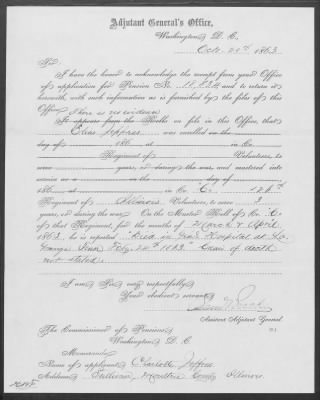 Adjutant General's Office,
Washington, D. C.
Oct. 21st, 1863
Sir:
I have the honor to acknowledge the receipt from your Office
of application for Pension No. and to return it
herewith, with such information as is furnished by the files of this
Office. There is no evidence
It appears from the Rolls on file in this Office, that
Elias Jeffres was enrolled on the
day of 186 , at in Co.
Regiment of Volunteers, to
serve years, or during the war, and mustered into
service as a on the day of
186 , at in Co. "C." 126th
Regiment of Illinois Volunteers, to serve 3
years, or during the war. On the Muster Roll of Co. "C"
of that Regiment, for the months of March & April
1863 he is reported "Died in Gen'l Hospital at La
Grange Tenn Feby. 24th 1863." Cause of death
not stated.
I am Sir, very respectfully,
Your obedient servant,
Assistant Adjutant General
The Commissioner of Pensions,
Washington, D. C.
Memoranda:
Name of applicant Charlotte Jeffres
Address Sullivan, Moultrie County Illinois.